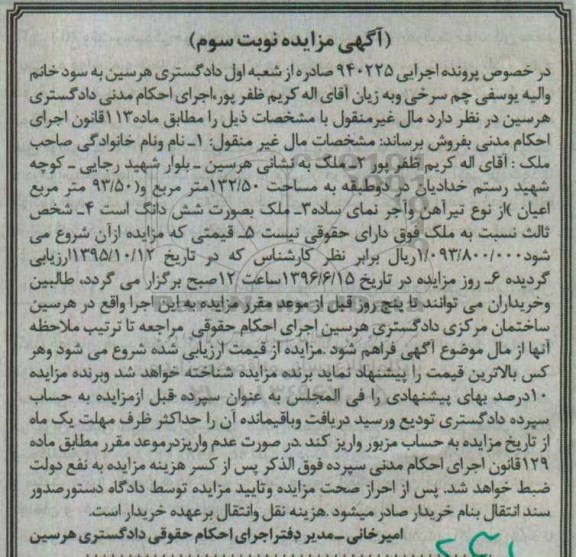 (آگهی مزایده نوبت سوم)
در خصوص پرونده اجرایی ۹۴۰۲۲۵ صادره از شعبه اول دادگستری هرسین به سود خانم
والیه یوسفی چم سرخی وبه زیان آقای اله کریم ظفر پور،اجرای احکام مدنی دادگستری
هرسین در نظر دارد مال غیرمنقول با مشخصات ذیل را مطابق ماده۱۱۳قانون اجرای
احکام مدنی بفروش برساند: مشخصات مال غیر منقول: ۱ـ نام ونام خانوادگی صاحب
ملک : آقای اله کریم ظفر پور ۲ـ ملک به نشانی هرسین ـ بلوار شهید رجایی ـ کوچه
شهید رستم خدادیان در دوطبقه به مساحت ۱۳۲/۵۰متر مربع و( ۹۳/۵۰ متر مربع
اعیان )از نوع تیرآهن وآجر نمای ساده۳ـ ملک بصورت شش دانگ است ۴ـ شخص
ثالث نسبت به ملک فوق دارای حقوقی نیست ۵ـ قیمتی که مزایده ازآن شروع می
شود۱/۰۹۳/۸۰۰/۰۰۰ریال برابر نظر کارشناس که در تاریخ ۱۳۹۵/۱۰/۱۲ارزیابی
گردیده ۶ـ روز مزایده در تاریخ ۱۳۹۶/۶/۱۵ساعت ۱۲صبح برگزار می گردد، طالبین
وخریداران می توانند تا پنج روز قبل از موعد مقرر مزایده به این اجرا واقع در هرسین
ساختمان مرکزی دادگستری هرسین اجرای احکام حقوقی مراجعه تا ترتیب ملاحظه
آنها از مال موضوع آگهی فراهم شود .مزایده از قیمت ارزیابی شده شروع می شود وهر
کس بالاترین قیمت را پیشنهاد نماید برنده مزایده شناخته خواهد شد وبرنده مزایده
۱۰درصد بهای پیشنهادی را فی المجلس به عنوان سپرده قبل ازمزایده به حساب
سپرده دادگستری تودیع ورسید دریافت وباقیمانده آن را حداکثر ظرف مهلت یک ماه
از تاریخ مزایده به حساب مزبور واریز کند .در صورت عدم واریزدرموعد مقرر مطابق ماده
۱۲۹قانون اجرای احکام مدنی سپرده فوق الذکر پس از کسر هزینه مزایده به نفع دولت
ضبط خواهد شد. پس از احراز صحت مزایده وتایید مزایده توسط دادگاه دستورصدور
سند انتقال بنام خریدار صادر میشود .هزینه نقل وانتقال برعهده خریدار است.
امیرخانی ــ مدیر دفتراجرای احکام حقوقی دادگستری هرسین